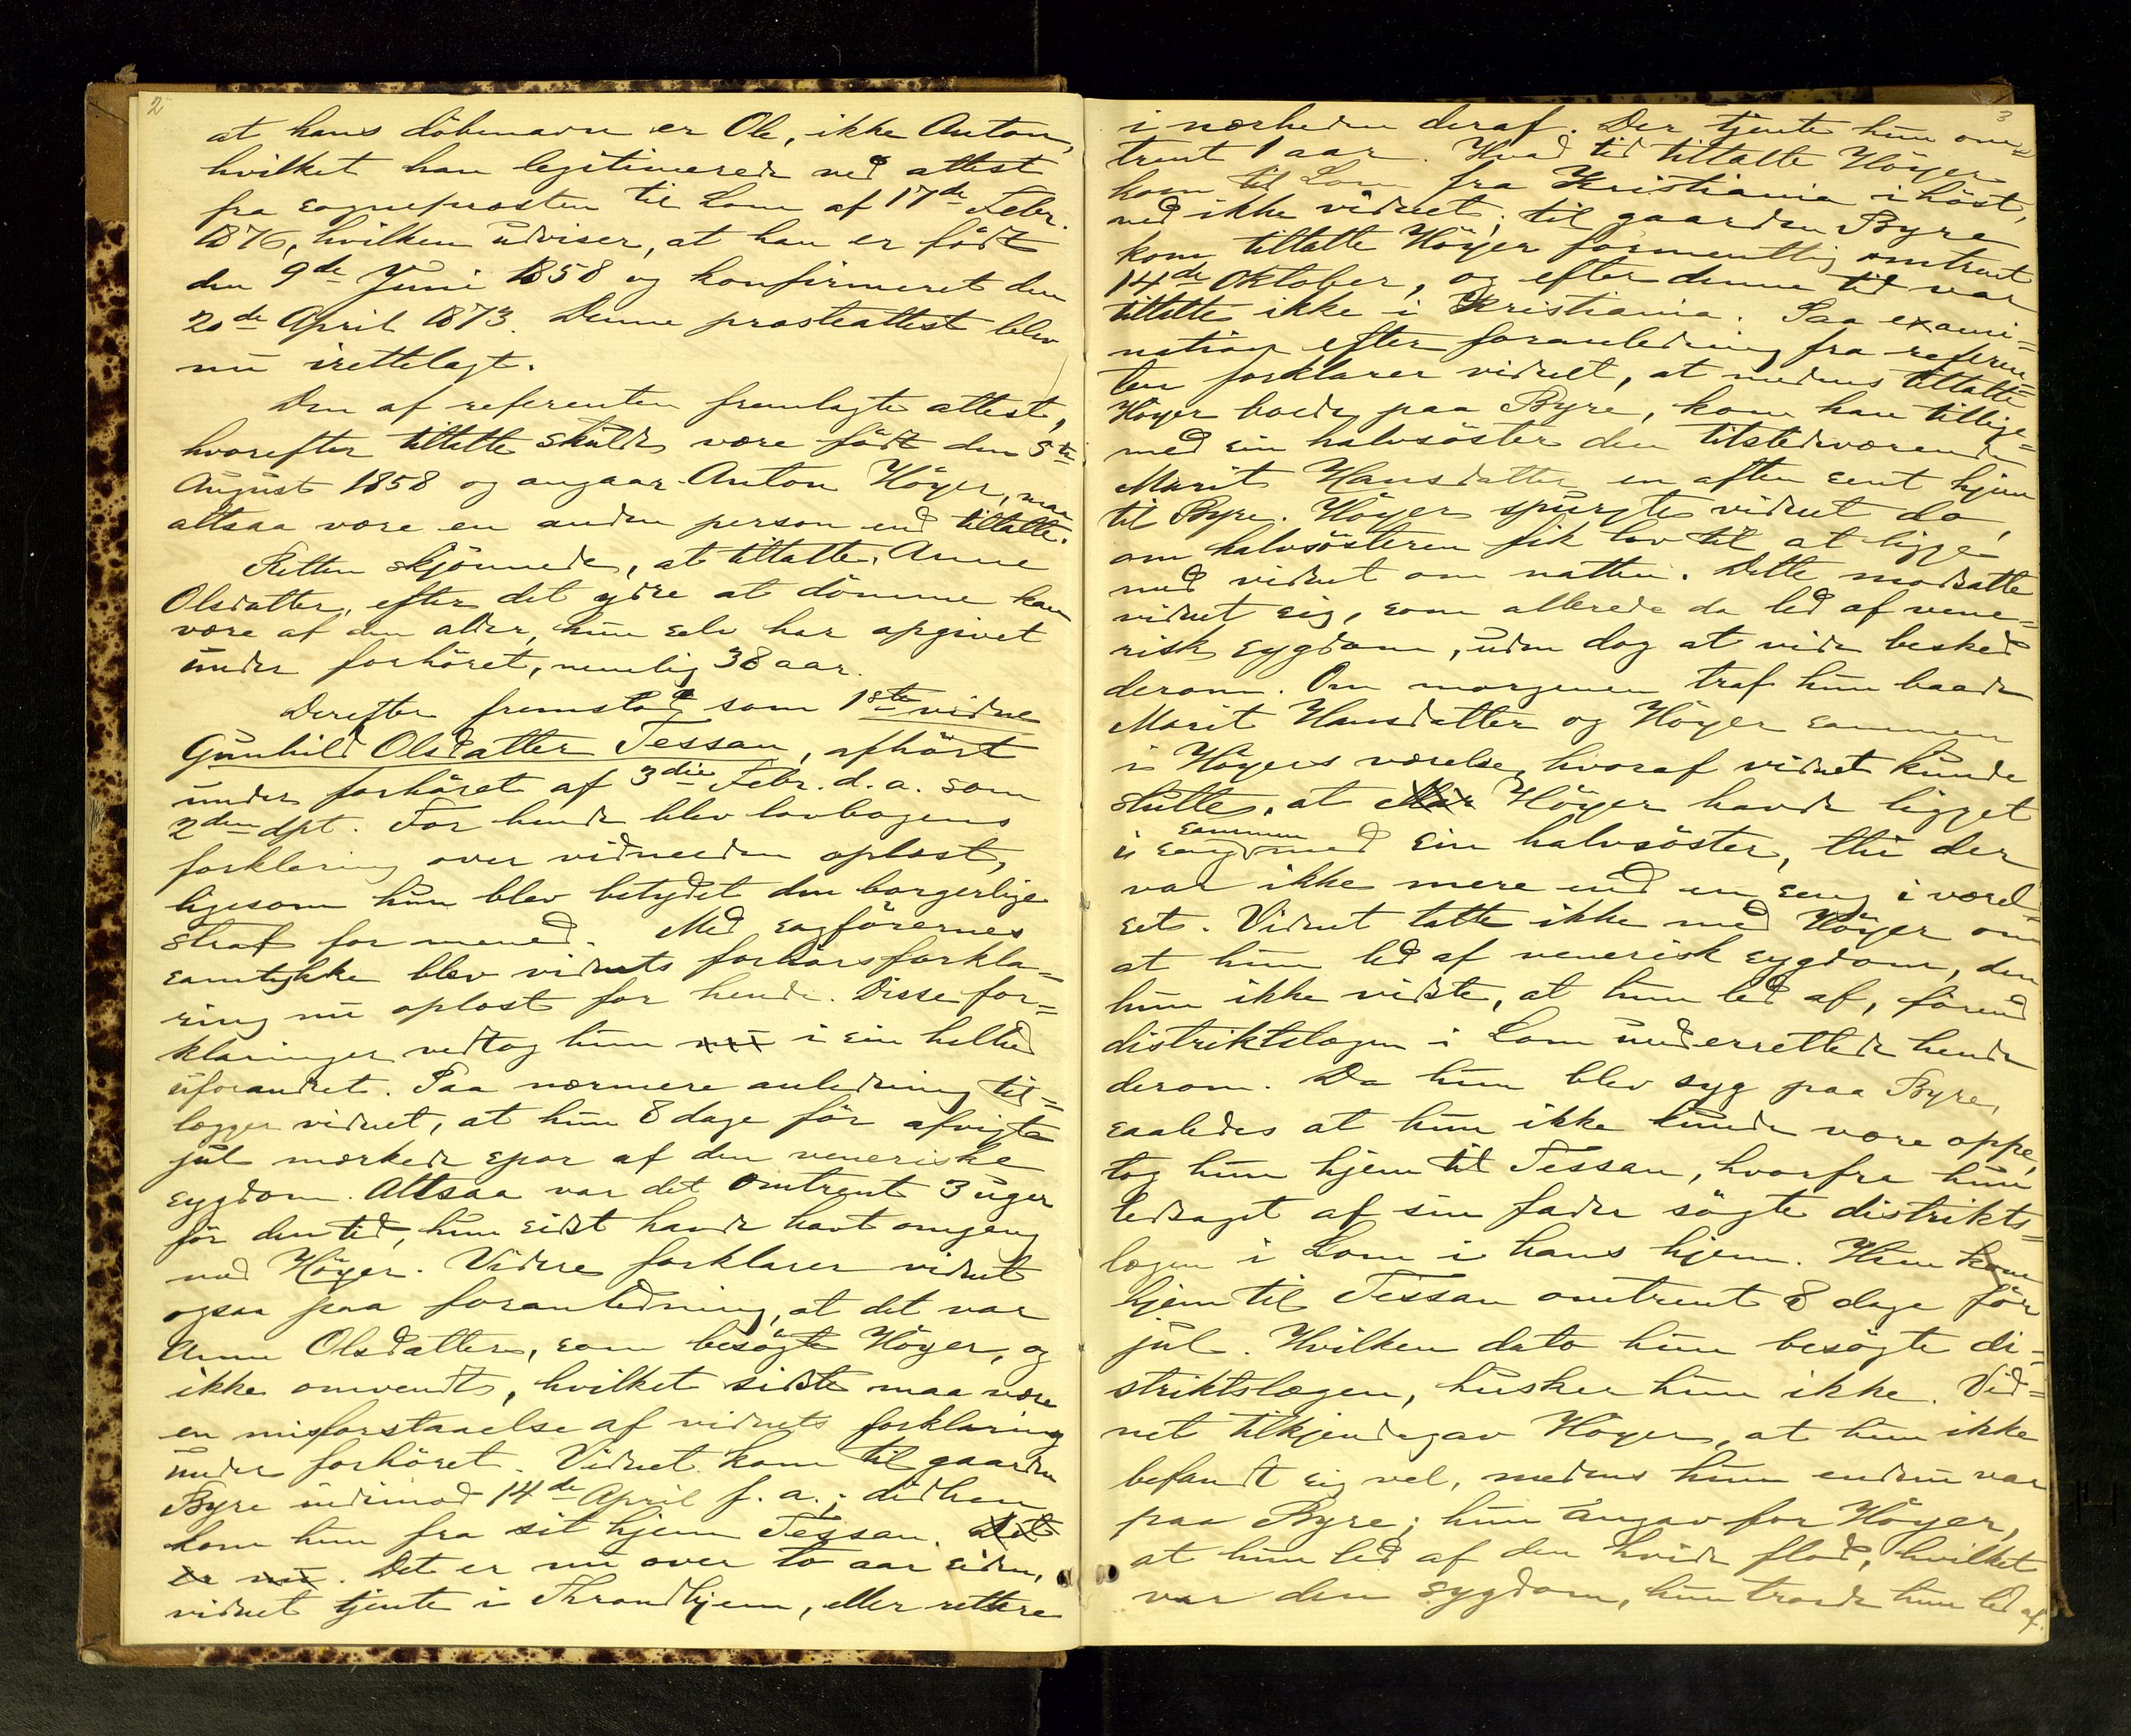 2
at hans döbenavn er Ole, ikke Anton,
hvilket han legitimerede ved attest
fra sogneprosten til Lom af 17de Febr.
1876, hvilken udviser, at han er födt
den 9de Juni 1858 og konfirmeret den
20de April 1873. Denne prosteattest blev
nu irettelagt.
Den af referenten fremlagte attest,
hvorefter tiltalte skulde være födt den 5te
August 1858 og angaar Anton Höyer, maa
altsaa være en anden person end tiltalte.
Retten skjönnede, at tiltalte, Anne
Olsdatter, efter det ydre at dömme kan
være af den alder, hun selv har opgivet
under forhöret, nemlig 38 aar.
Derefter fremstod som 1ste vidne
Gunhild Olsdatter Tessan, afhört
under forhöret af 3die Febr. d. a. som
2den dpt. For hende blev lovbogens
forklaring over vidneeden oplæst,
ligesom hun blev betydet den borgerlige
straf for mened. Med sagförernes
samtykke blev vidnets forhörsforkla=
ring nu oplæst for hende. Disse for=
klaringer vedtog hun nu i sin helhed
uforandret. Paa nærmere anledning til=
lægger vidnet, at hun 8 dage för afvigte
jul mærkede spor af den veneriske
sygdom. Altsaa var det omtrent 3 uger
för den tid, hun sidst havde havt omgang
med Höyer. Videre forklarer vidnet
ogsaa paa foranledning, at det var
Anne Olsdatter, som besögte Höyer, og
ikke omvendt, hvilket sidste maa være
en misforstaaelse af vidnets forklaring
under forhöret. Vidnet kom til gaarden
Byre indimod 14de April f. a.; didhen
kom hun fra sit hjem Tessan. Det
er nu. Det er nu over to aar siden,
vidnet tjente i Throndhjem, eller rettere
3
i nærheden deraf. Der tjente hun om=
trent 1 aar. Hvad tid tiltalte Höyer
kom til Lom fra Kristiania ihöst,
ved ikke vidnet; til gaarden Byre
kom tiltalte Höyer formentlig omtrent
14de Oktober, og efter denne tid var
tiltalte ikke i Kristiania. Paa exami=
nation efter foranledning fra referen=
ten forklarer vidnet, at medens tiltalte
Höyer boede paa Byre, kom han tillige=
med sin halvsöster den tilstedeværende
Marit Hansdatter en aften sent hjem
til Byre. Höyer spurgte vidnet da,
om halvsösteren fik lov til at ligge
med vidnet om natten. Dette modsatte
vidnet sig, som allerede da led af vene=
risk sygdom, uden dog at vide besked
derom. Om morgenen traf hun baade
Marit Hansdatter og Höyer sammen
i Höyers værelse, hvoraf vidnet kunde
slutte, at Höyer havde ligget
i seng sammen med sin halvsöster, thi der
var ikke mere end en seng i værel=
set. Vidnet talte ikke med Höyer om
at hun led af venerisk sygdom, den
hun ikke vidste, at hun led af, förend
distriktslægen i Lom underrettede hende
derom. Da hun blev syg paa Byre,
saaledes at hun ikke kunde være oppe,
tog hun hjem til Tessan, hvorfra hun
ledsaget af sin fader sögte distrikts=
lægen i Lom i hans hjem. Hun kom
hjem til Tessan omtrent 8 dage för
jul. Hvilken dato hun besögte di=
striktslægen, husker hun ikke. Vid=
net tilkjendegav Höyer, at hun ikke
befandt sig vel, medens hun endnu var
paa Byre; hun angav for Höyer,
at hun led af den hvide flod, hvilket
var den sygdom, hun troede hun led af.